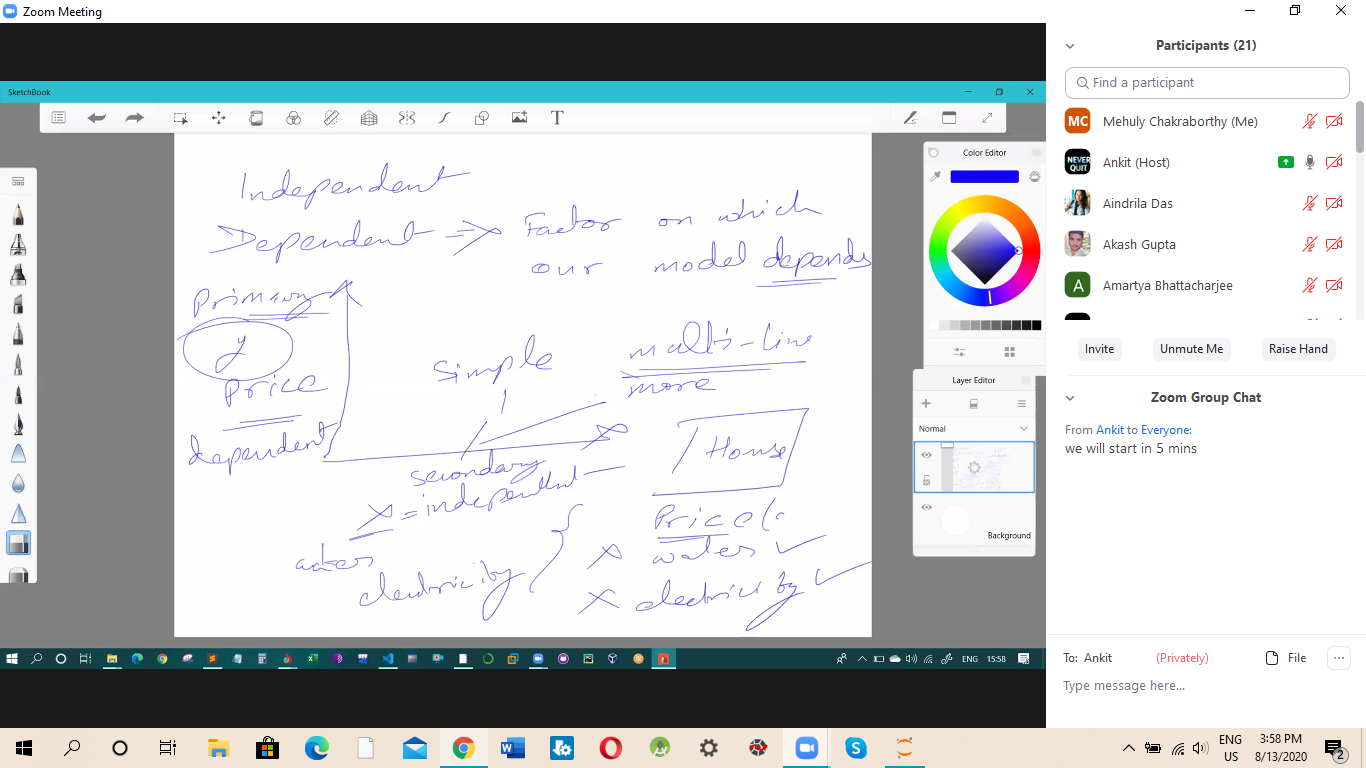 Zoom Meeting
SketchBook
Independent
Dependent => Factor on which
our model depends
Primary
y
Price
dependent
Simple
multi-line
more
House
secondary
X = independent
Price (
water
electricity
X water
X electricity
Color Editor
Layer Editor
Normal
Background
ENG 15:58
Participants (21)
Find a participant
MC Mehuly Chakraborthy (Me)
NEVER QUIT Ankit (Host)
Aindrila Das
Akash Gupta
A Amartya Bhattacharjee
Invite Unmute Me Raise Hand
Zoom Group Chat
From Ankit to Everyone:
we will start in 5 mins
To: Ankit (Privately) File
Type message here...
ENG 3:58 PM
US 8/13/2020 2